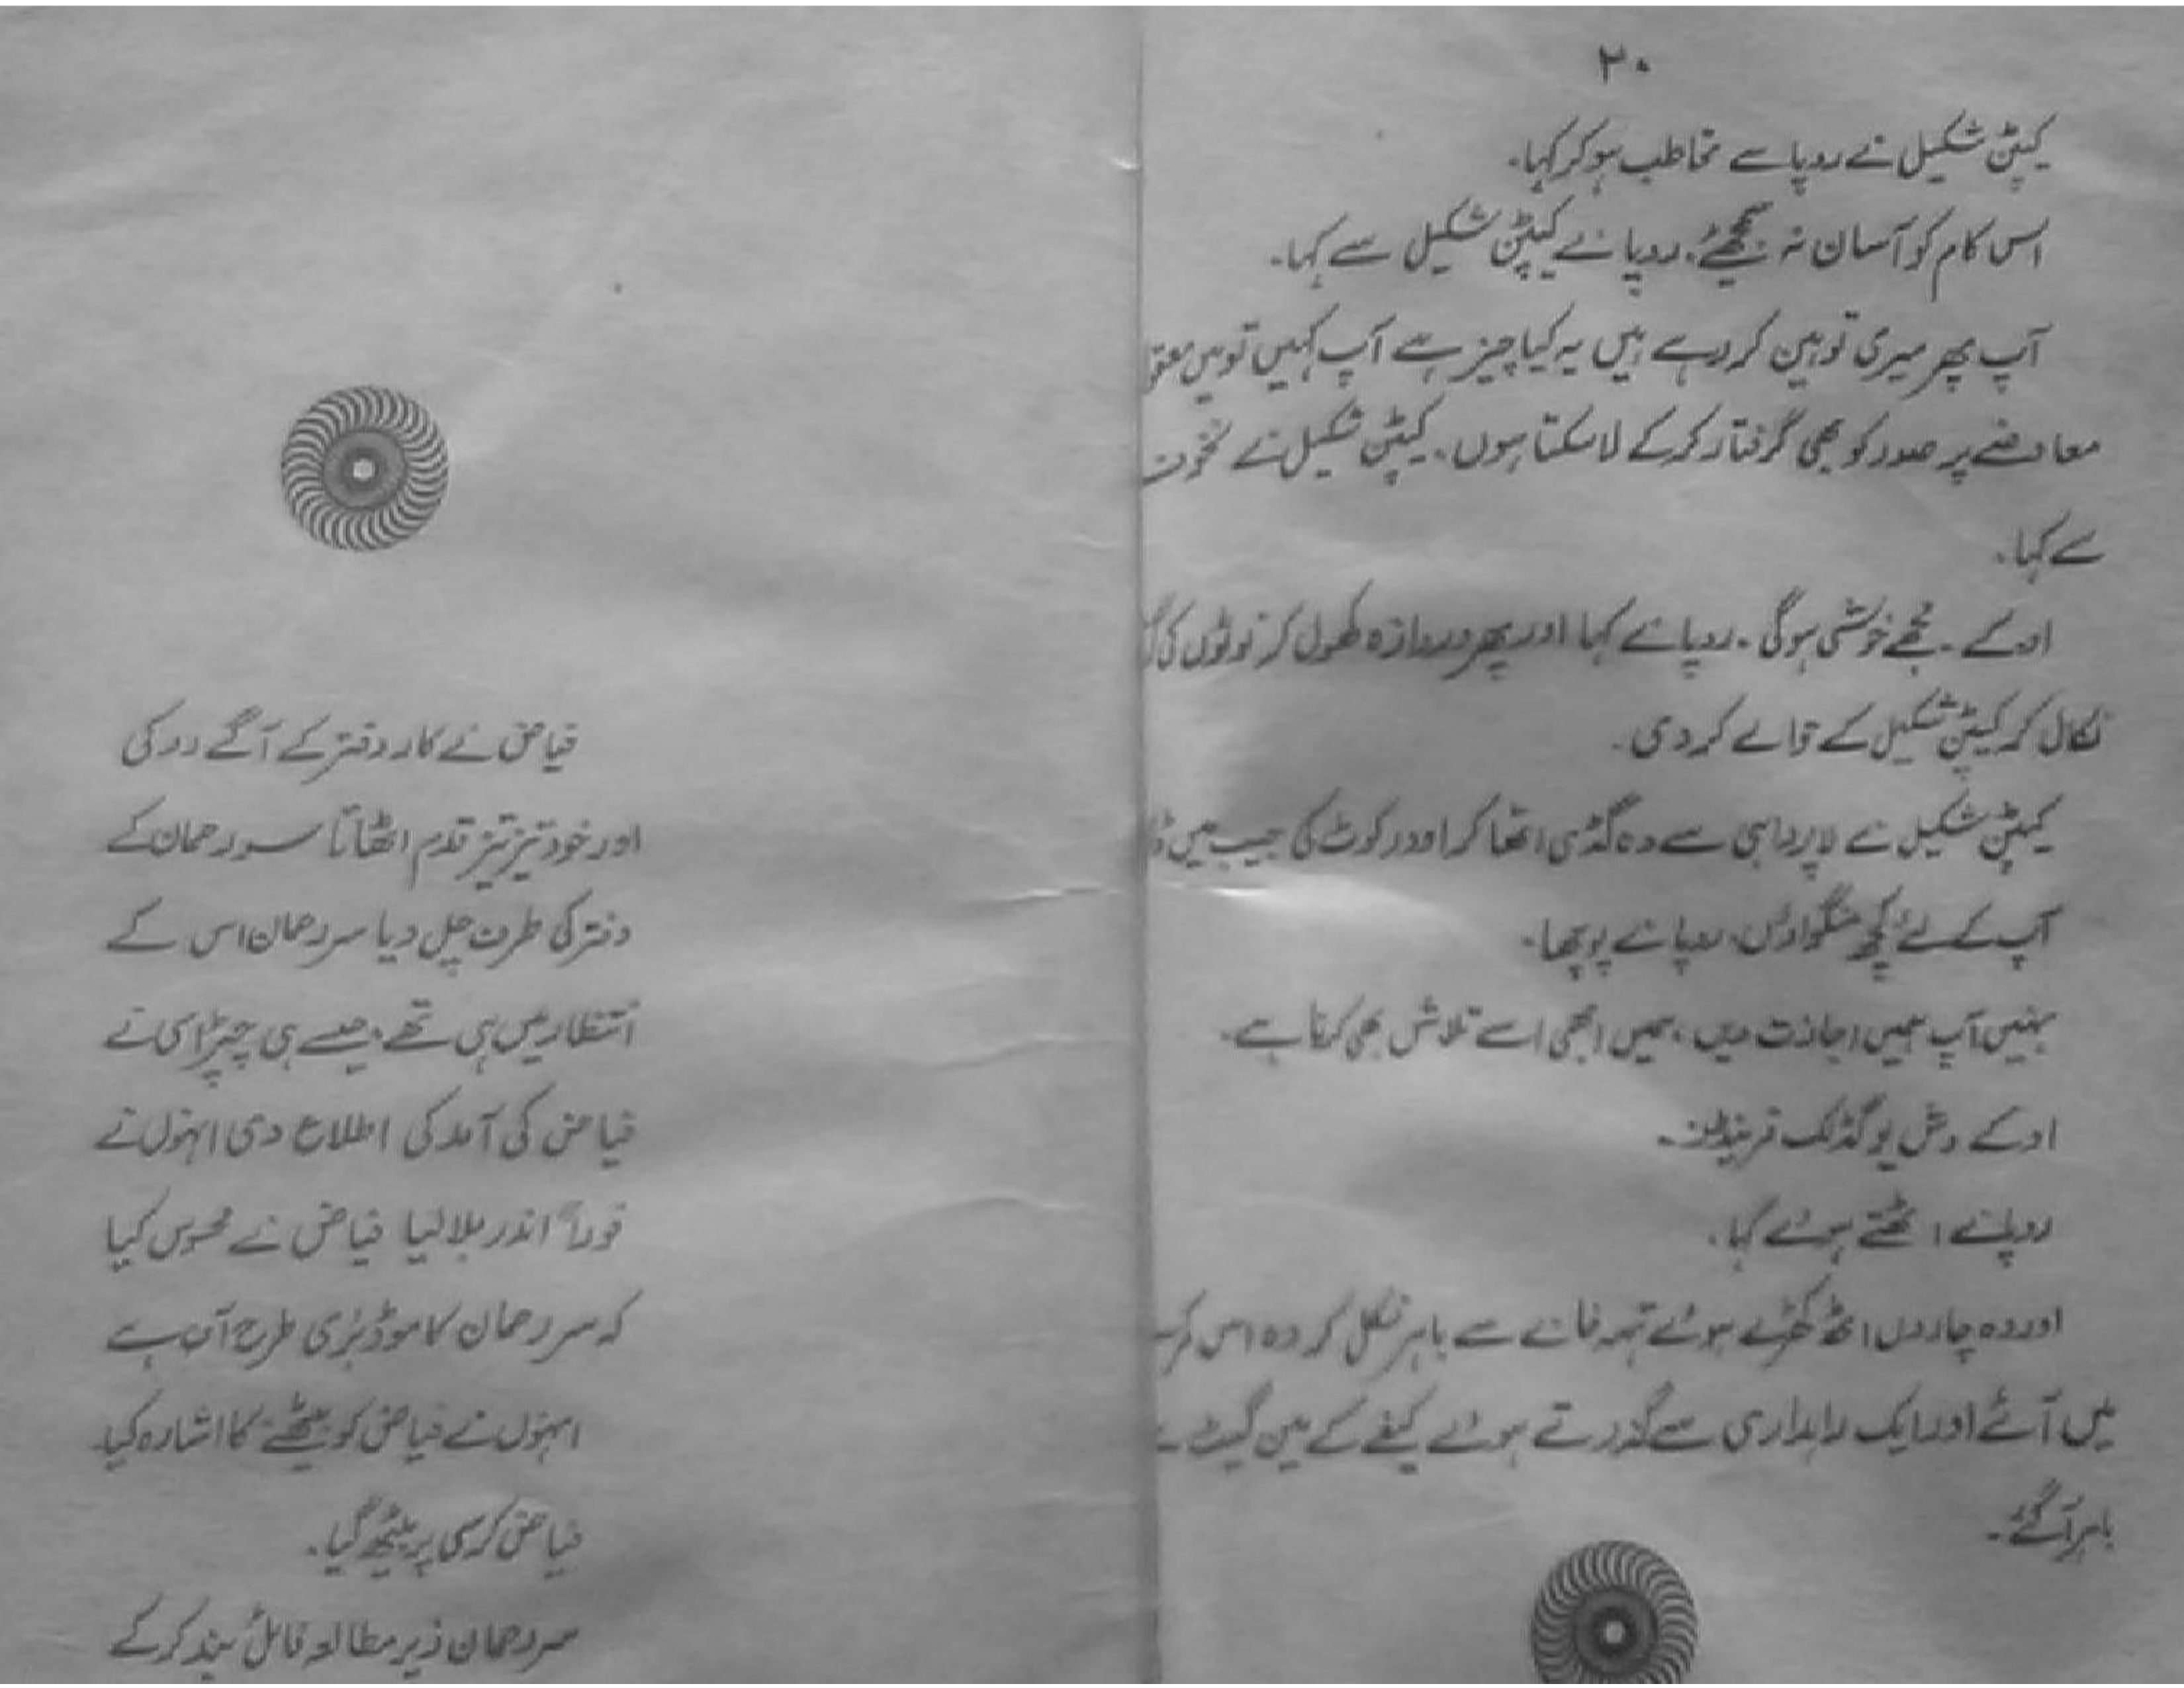 ۲۰
کیپٹن شکیل نے روپا سے مخاطب ہو کر کہا۔
اس کام کو آسان نہ سمجھئے۔ روپا نے کیپٹن شکیل سے کہا۔
آپ پھر میری توہین کر رہے ہیں یہ کیا چیز ہے آپ کہیں تو میں
معاوضے پر صدر کو بھی گرفتار کرکے لا سکتا ہوں۔ کیپٹن شکیل نے
سے کہا۔
اوکے ۔ مجھے خوشی ہوگی ۔ روپا نے کہا اور پھر دروازہ کھول کر نوٹوں کی
نکال کر کیپٹن شکیل کے حوالے کر دی ۔
کیپٹن شکیل نے لاپرواہی سے وہ گڈی اٹھا کر اوور کوٹ کی جیب میں
آپ کے لئے کچھ منگواؤں۔ روپا نے پوچھا۔
نہیں آپ ہمیں اجازت دیں ، ہمیں ابھی اسے تلاش بھی کرنا ہے۔
اوکے وش یو گڈ لک فرینڈز۔
روپا نے اٹھتے ہوئے کہا۔
اور وہ چاروں اٹھ کھڑے ہوئے تہہ خانے سے باہر نکل کر وہ اس
میں آئے اور ایک راہداری سے گذرتے ہوئے کیفے کے مین گیٹ
باہر آگئے۔
فیاض نے کار دفتر کے آگے روکی
اور خود تیز تیز قدم اٹھاتا سر رحمان کے
دفتر کی طرف چل دیا سر رحمان اس کے
انتظار میں ہی تھے۔ جیسے ہی چپڑاسی نے
فیاض کی آمد کی اطلاع دی انہوں نے
فوراً اندر بلا لیا فیاض نے محسوس کیا
کہ سر رحمان کا موڈ بری طرح آف ہے
انہوں نے فیاض کو بیٹھنے کا اشارہ کیا
فیاض کرسی پر بیٹھ گیا۔
سر رحمان زیر مطالعہ فائل بند کرکے